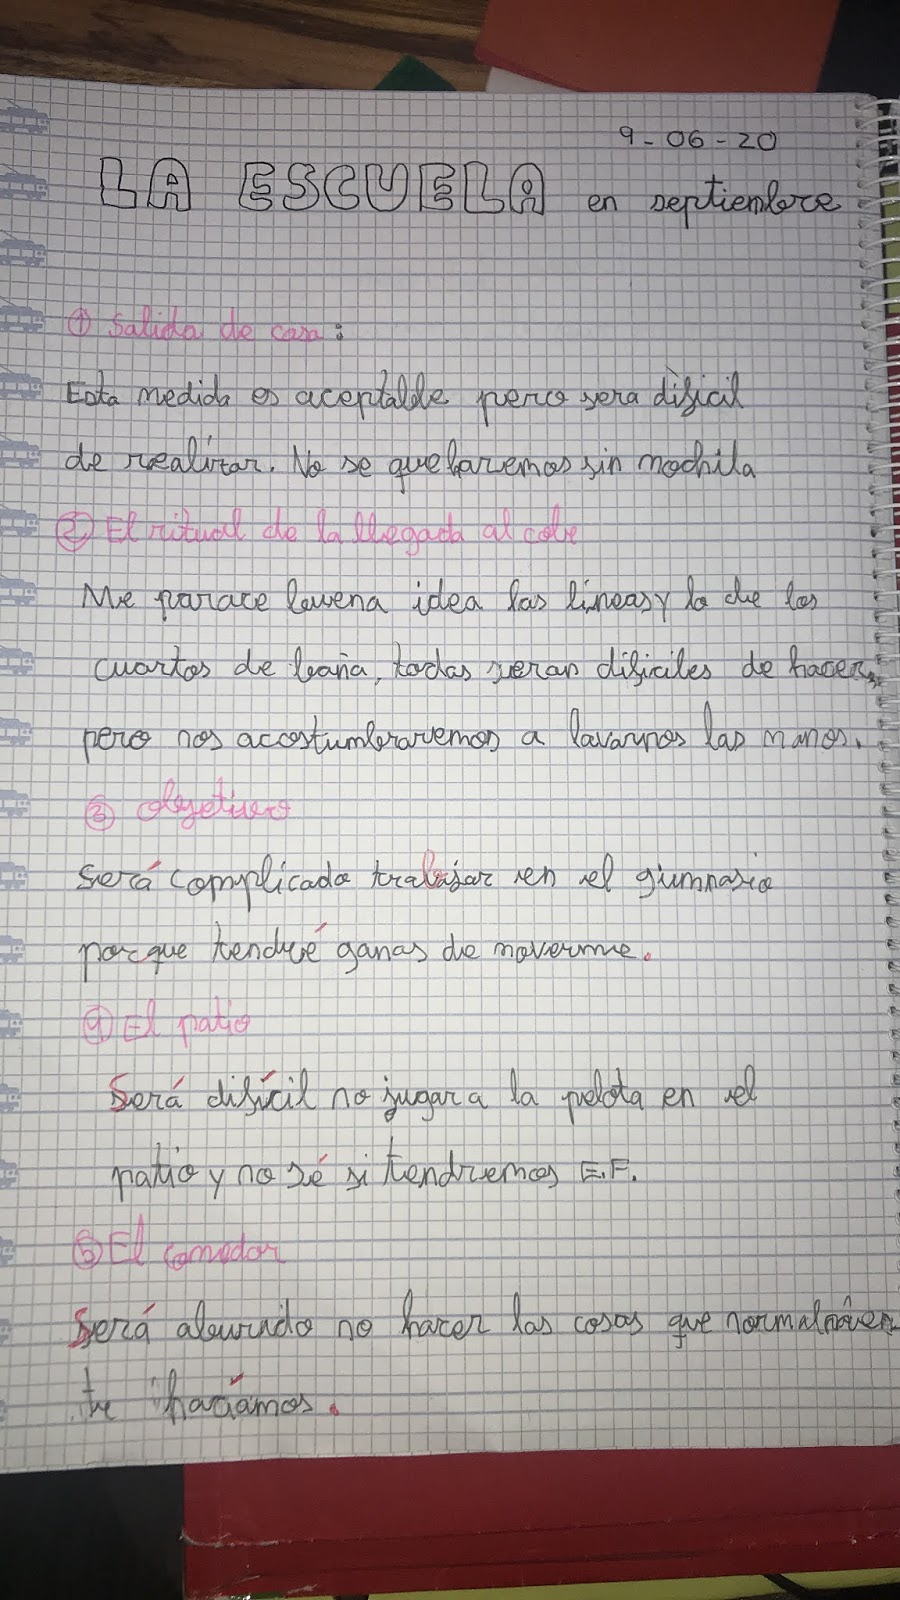 9-06-20
LA ESCUELA en septiembre
① Salida de casa:
Esta medida es aceptable pero sera dificil
de realizar. No se que haremos sin mochila
② El ritual de la llegada al cole
Me parace buena idea las lineas y lo de los
cuartos de baña, todas seran dificiles de hacer,
pero nos acostumbraremos a lavarnos las manos.
③ Objetivos
Será complicado trabajar en el gimnasio
porque tendré ganas de moverme.
④ El patio
Será difícil no jugar a la pelota en el
patio y no sé si tendremos E.F.
⑤ El comedor
Será aburrido no hacer las cosas que normalmen
te hacíamos.